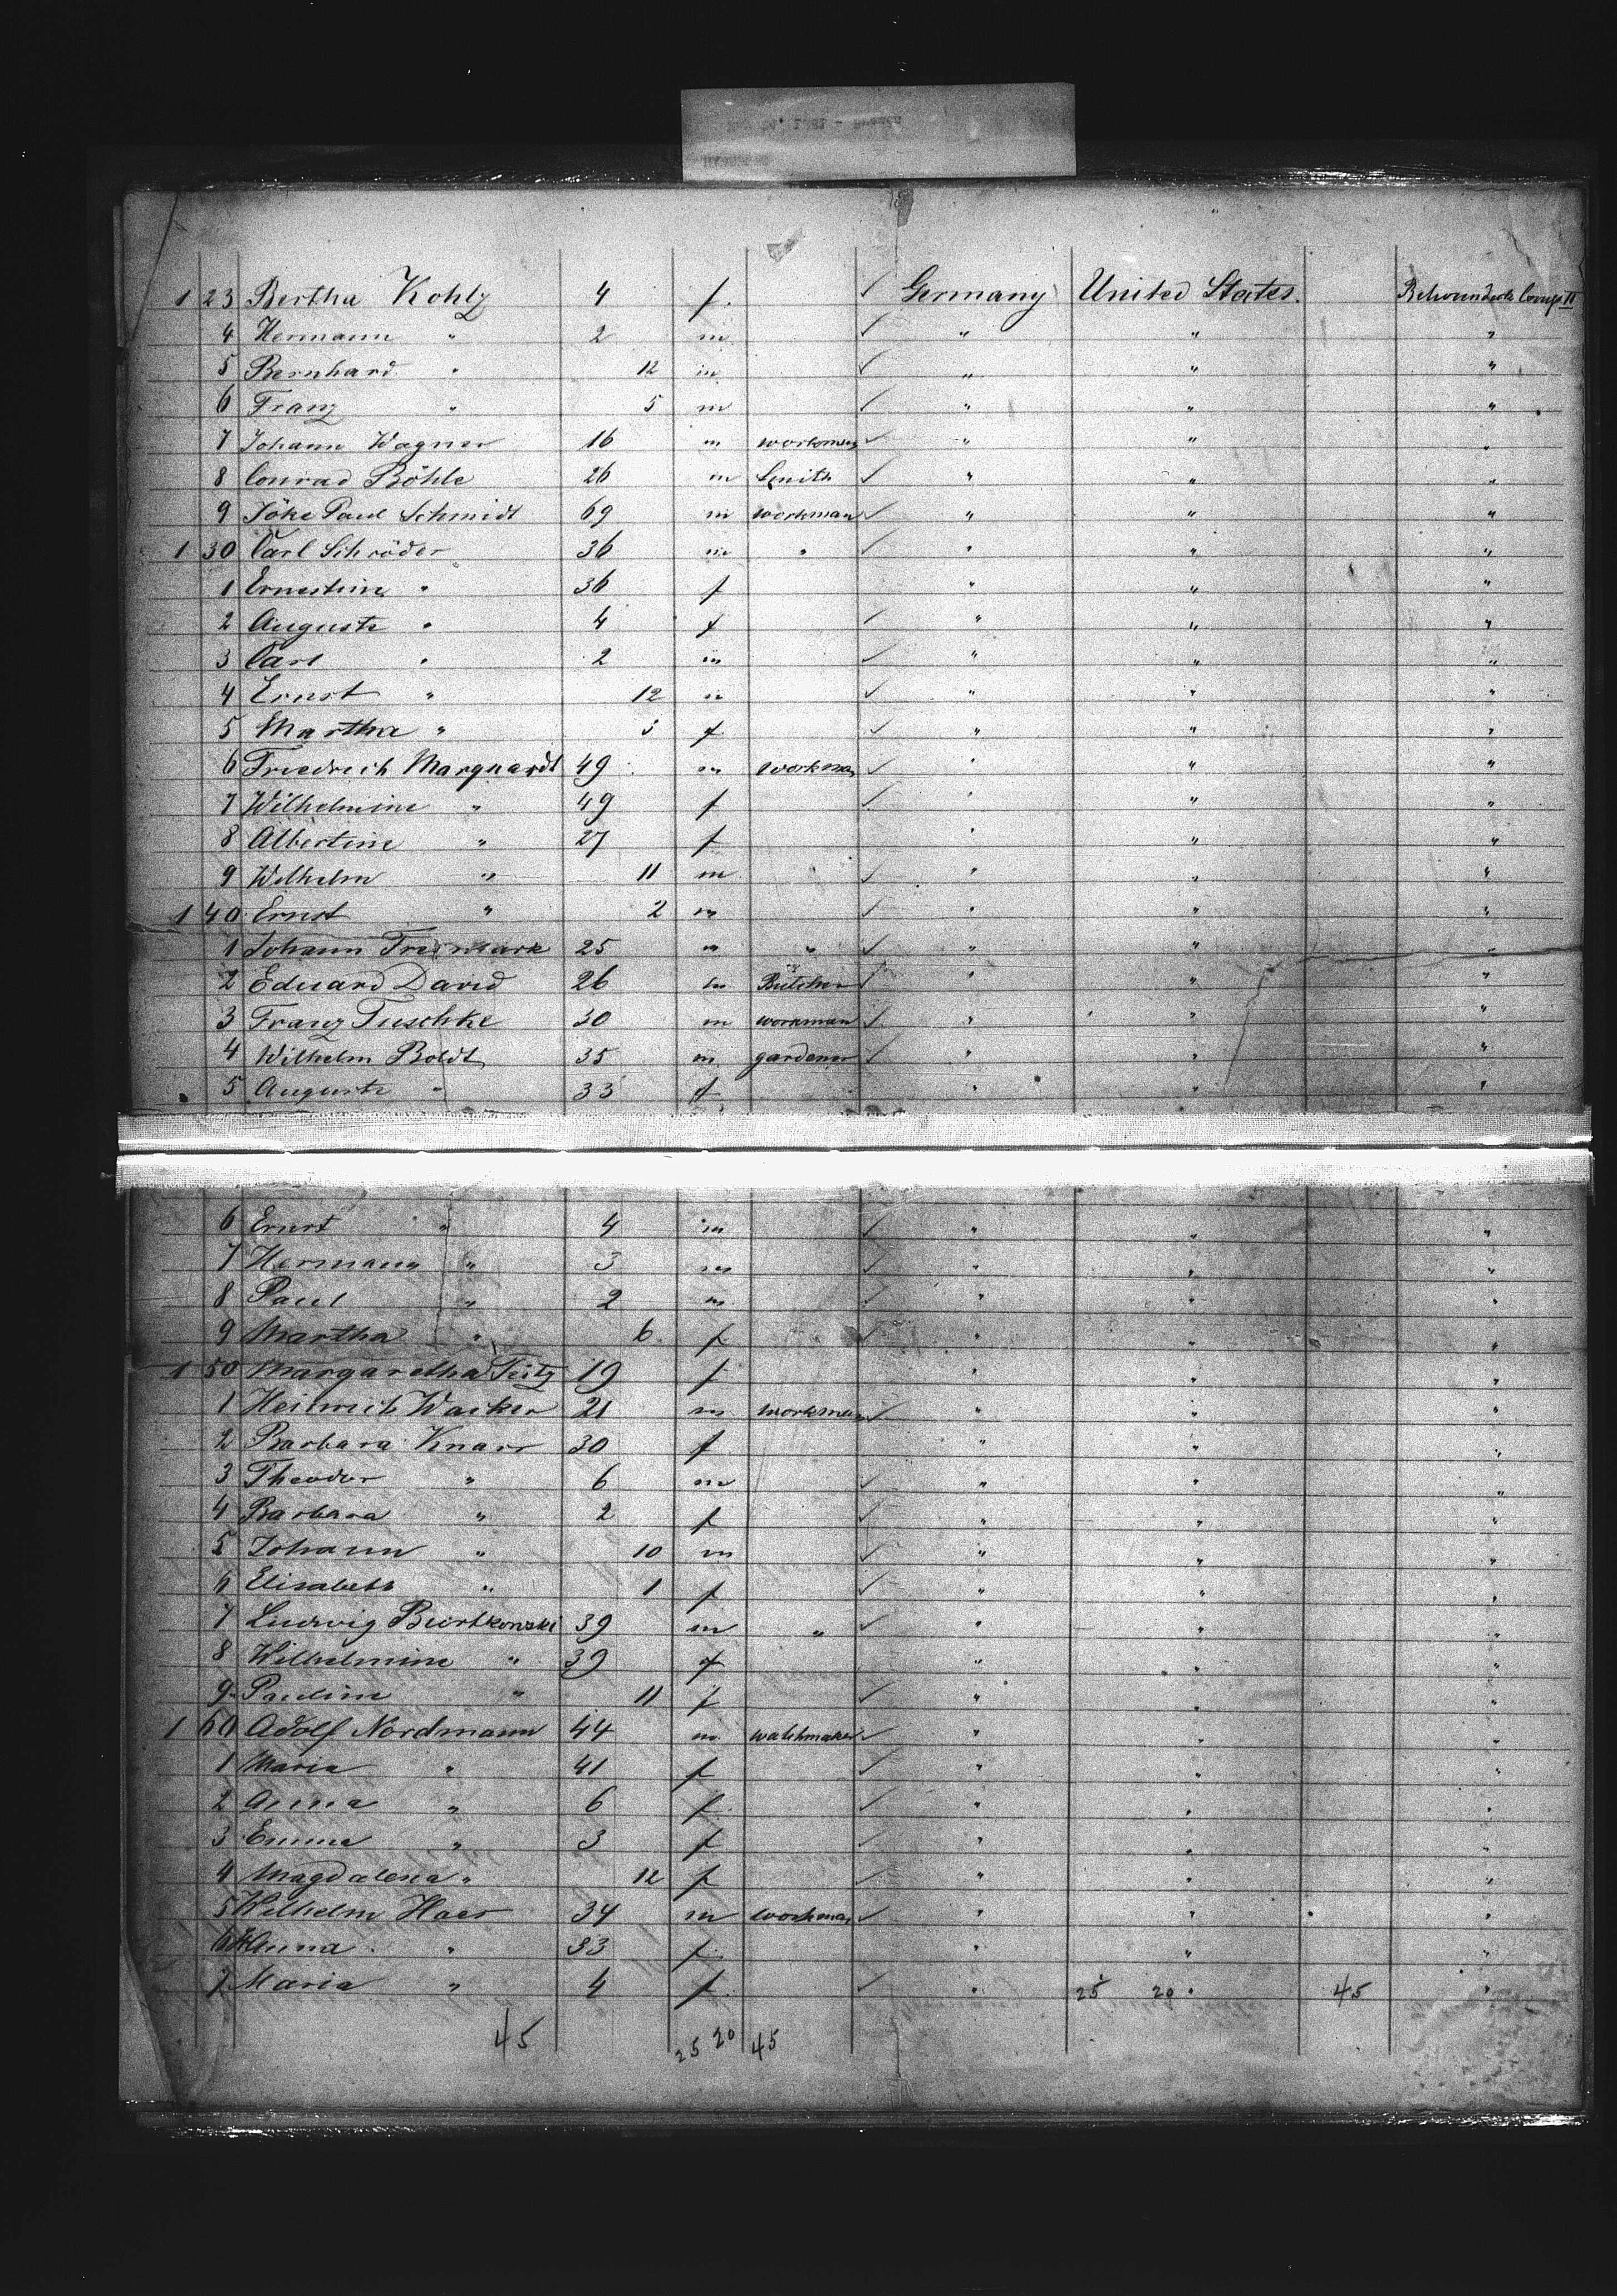 1 23 Bertha Kohlz 4 f. ✓ Germany United States.
4 Hermann " 2 m ✓ " " "
5 Bernhard " 12 m ✓ " " "
6 Franz " 5 m ✓ " " "
7 Johann Wagner 16 m workman ✓ " " "
8 Conrad Böhle 26 m Smith ✓ " " "
9 Paul Schmidt 69 m workman ✓ " " "
1 30 Carl Schröder 36 m " ✓ " " "
1 Ernestine " 36 f " " "
2 Auguste " 4 f ✓ " " "
3 Carl " 2 m ✓ " " "
4 Ernst " 12 m ✓ " " "
5 Martha " 3 f ✓ " " "
6 Friedrich Marquardt 49 m workman ✓ " " "
7 Wilhelmine " 49 f ✓ " " "
8 Albertine " 27 f " " "
9 Wilhelm " 11 m ✓ " " "
1 40 Ernst " 2 m ✓ " " "
1 Johann 25 m " ✓ " " "
2 Eduard David 26 m Butcher ✓ " " "
3 Franz Tuschke 30 m workman ✓ " " "
4 Wilhelm Boldt 35 m gardener ✓ " " "
5 Auguste " 33 f " " "
6 Ernst " 4 m ✓ " " "
7 Hermann " 3 m ✓ " " "
8 Paul " 2 m ✓ " " "
9 Martha " 6 f ✓ " " "
1 50 Margaretha 19 f " " "
1 Heinrich Wacker 21 m workman ✓ " " "
2 Barbara Knarr 30 f " " "
3 Theodor " 6 m ✓ " " "
4 Barbara " 2 f ✓ " " "
5 Johann " 10 m ✓ " " "
6 Elisabeth " 1 f ✓ " " "
7 Ludwig 39 m " ✓ " " "
8 Wilhelmine " 39 f " " "
9 Pauline " 11 f ✓ " " "
1 60 Adolf Nordmann 44 m watchmaker ✓ " " "
1 Maria " 41 f ✓ " " "
2 Anna " 6 f. ✓ " " "
3 Emma " 3 f ✓ " " "
4 Magdalena " 12 f ✓ " " "
5 Wilhelm Haer 34 m workman ✓ " " "
6 Anna " 33 f " " "
7 Maria " 4 f ✓ " 25 20 " 45 "
45 25 20 45